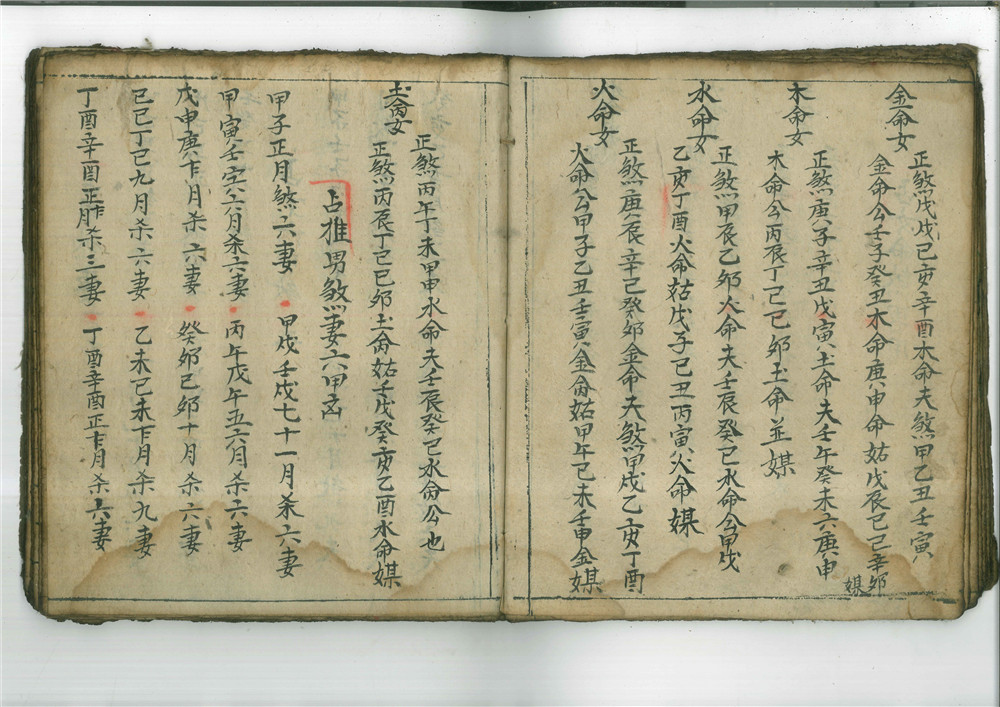 金命女
正煞戊戌己亥辛酉木命夫煞甲乙丑壬寅
金命公壬子癸丑木命庚申命姑戊辰己巳辛卯媒
木命女
正煞庚子辛丑戊寅土命夫壬午癸未六庚申
木命公丙辰丁巳己卯土命並媒
水命女
正煞甲辰乙卯火命夫壬辰癸巳水命公甲戌
乙亥丁酉火命姑戊子己丑丙寅火命媒
火命女
正煞庚辰辛巳癸卯金命夫煞甲戌乙亥丁酉
火命公甲子乙丑壬寅金命姑甲午己未壬申金媒
土命女
正煞丙午丁未甲申水命夫壬辰癸巳水命公也
正煞丙辰丁巳己卯土命姑壬戌癸亥乙酉水命媒
占推男煞妻六甲凶
甲子正月煞六妻 甲戌壬戌七十一月杀六妻
甲寅壬寅六月杀六妻 丙午戊午五六月杀六妻
戊申庚月杀六妻 癸卯己卯十月杀六妻
己巳丁巳九月杀六妻 乙未己未月杀九妻
丁酉辛酉正月杀三妻 丁酉辛酉正月杀六妻